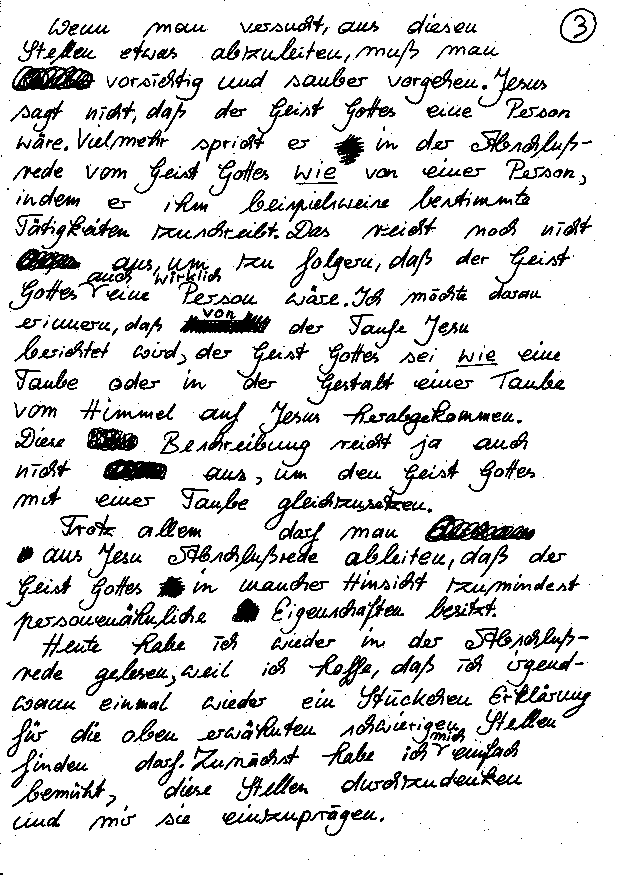 ③
Wenn man versucht, aus diesen
Stellen etwas abzuleiten, muß man
vorsichtig und sauber vorgehen. Jesus
sagt nicht, daß der Geist Gottes eine Person
wäre. Vielmehr spricht er in der Abschluß-
rede vom Geist Gottes wie von einer Person,
indem er ihm beispielsweise bestimmte
Tätigkeiten zuschreibt. Das reicht noch nicht
aus, um zu folgern, daß der Geist
auch wirklich
Gottes eine Person wäre. Ich möchte daran
erinnern, daß von der Taufe Jesu
berichtet wird, der Geist Gottes sei wie eine
Taube oder in der Gestalt einer Taube
vom Himmel auf Jesus herabgekommen.
Diese Beschreibung reicht ja auch
nicht aus, um den Geist Gottes
mit einer Taube gleichzusetzen.
Trotz allem darf man
aus Jesu Abschlußrede ableiten, daß der
Geist Gottes in mancher Hinsicht zumindest
personenähnliche Eigenschaften besitzt.
Heute habe ich wieder in der Abschluß-
rede gelesen, weil ich hoffe, daß ich irgend-
wann einmal wieder ein Stückchen Erklärung
für die oben erwähnten schwierigen Stellen
finden darf. Zunächst habe ich mich einfach
bemüht, diese Stellen durchzudenken
und mir sie einzuprägen.